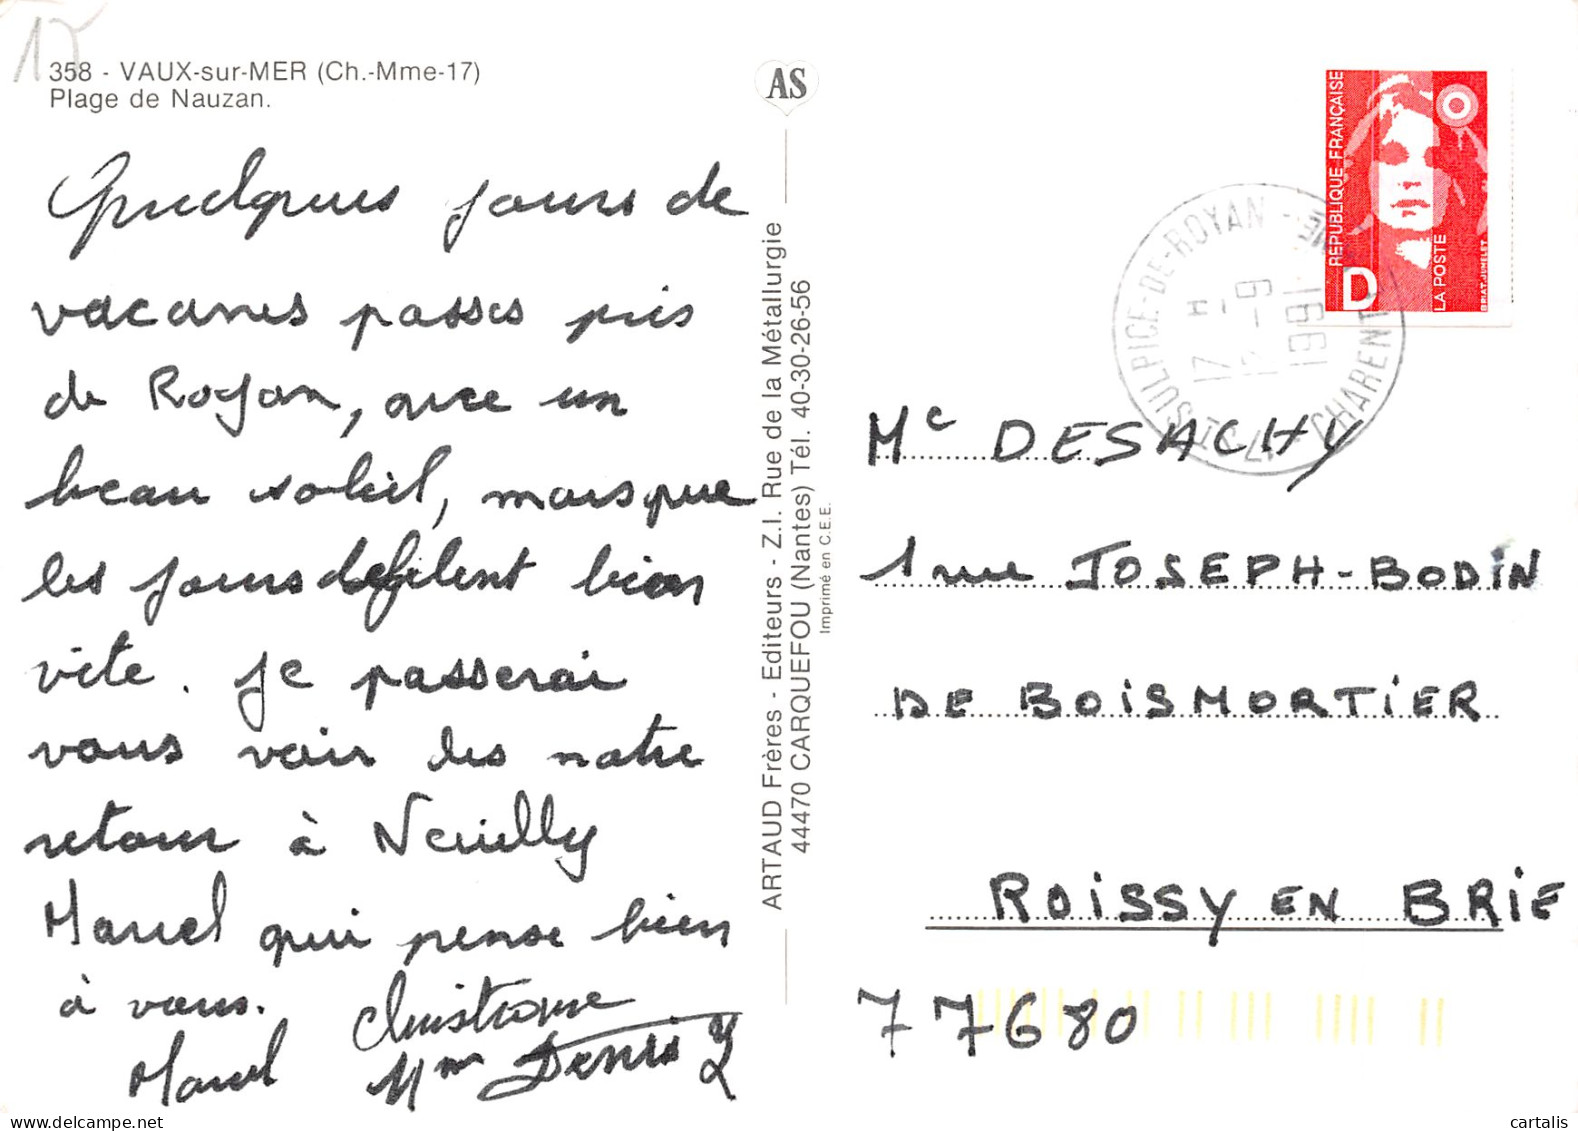 17
358 - VAUX-sur-MER (Ch.-Mme-17)
Plage de Nauzan.
Quelques jours de
vacances passes près
de Royan, avec un
beau soleil, mais que
les jours defilent bien
vite. Je passerai
vous voir dès notre
retour à Neuilly
Marcel qui pense bien
à vous.
Christiane
Marcel
Mme Denis
AS
ARTAUD Frères - Editeurs - Z.I. Rue de la Métallurgie
44470 CARQUEFOU (Nantes) Tél. 40-30-26-56
Imprimé en C.E.E.
RÉPUBLIQUE FRANÇAISE
D
LA POSTE
BRIAT-JUMELET
17 ST SULPICE-DE-ROYAN - CHARENTE
17 H
1991
Me DESACHY
1 rue JOSEPH-BODIN
DE BOISMORTIER
ROISSY EN BRIE
77680
cartalis